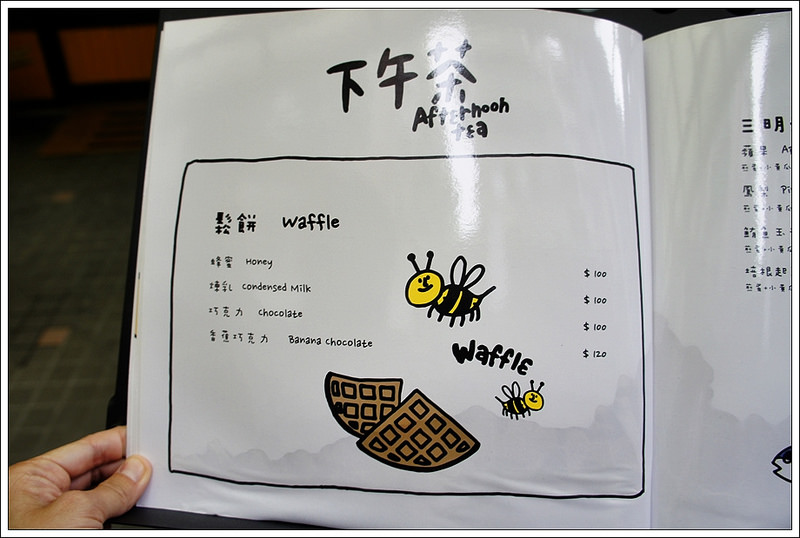 下午茶
Afternoon
tea
鬆餅 Waffle
蜂蜜 Honey $ 100
煉乳 Condensed Milk $ 100
巧克力 Chocolate $ 100
香蕉巧克力 Banana Chocolate $ 120
Waffle
三明
蘋果
鳳梨
鮪魚玉
培根起